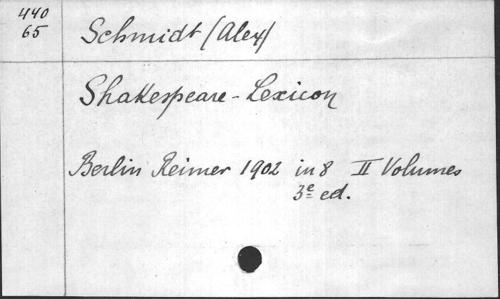 440
65
Schmidt (Alex)
Shakespeare-Lexicon
Berlin Reimer 1902 in 8 II Volumes
3e ed.